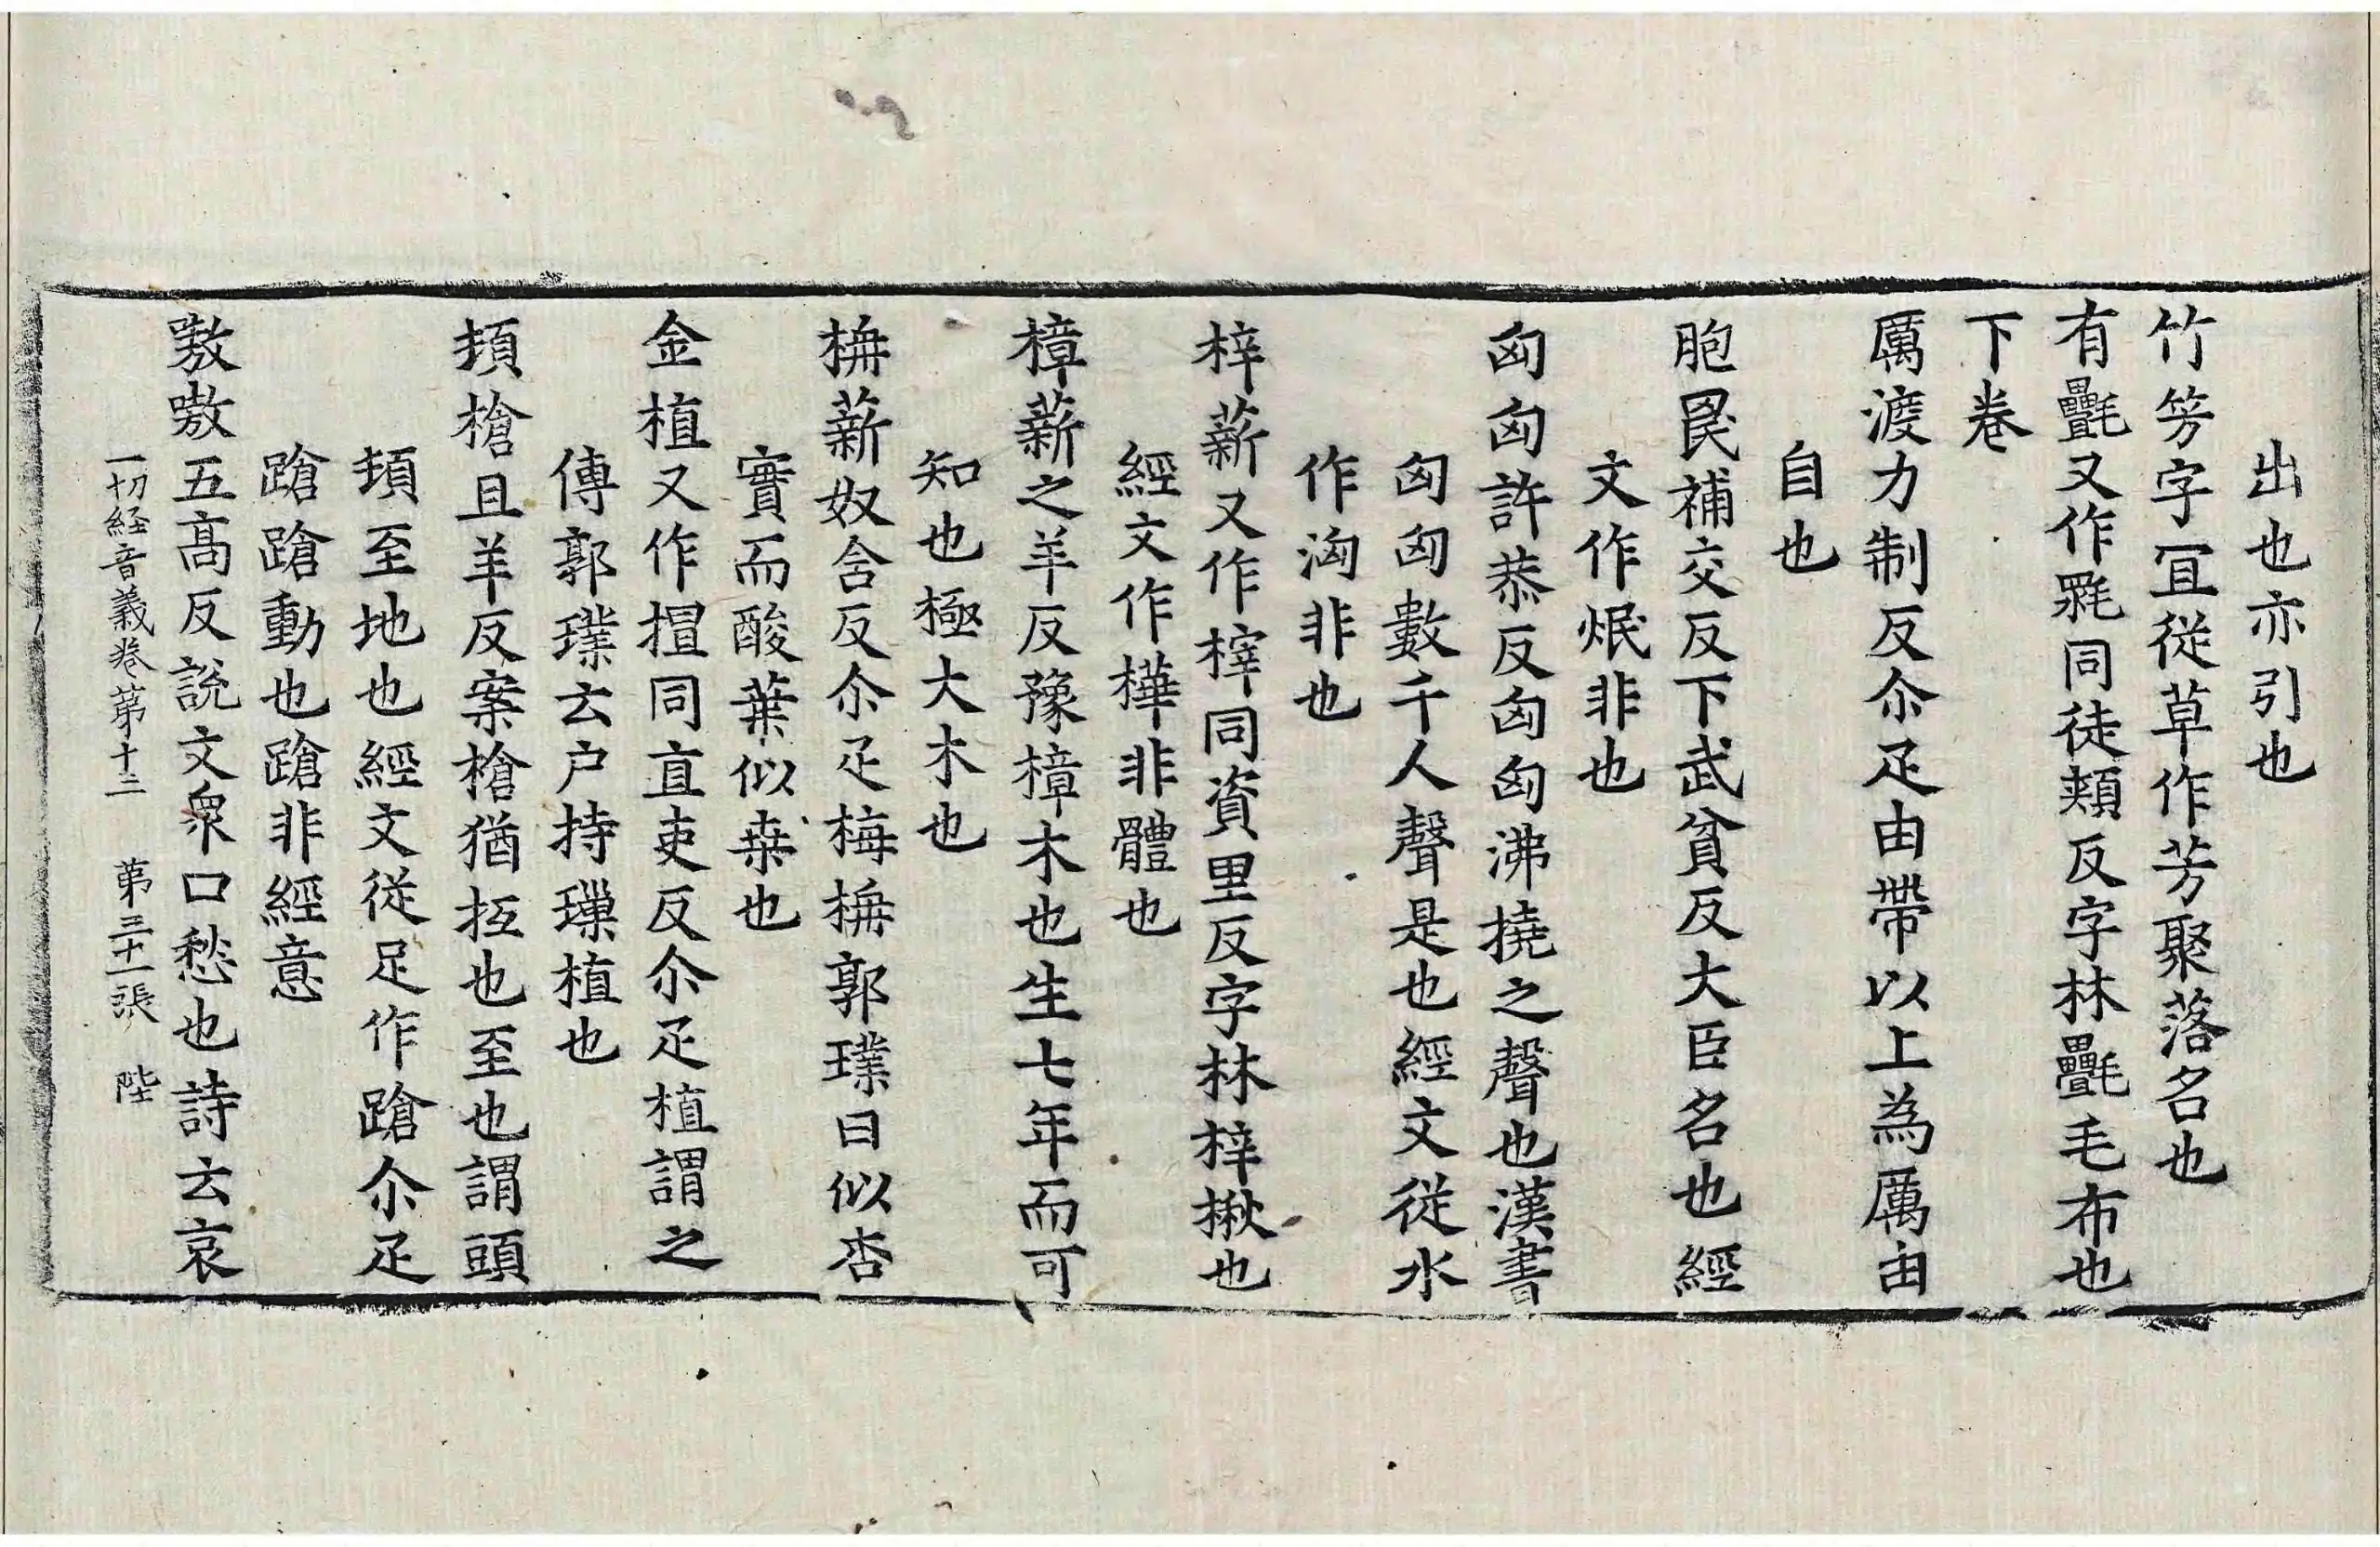 出也亦引也
竹竻字冝従草作芳聚落名也
有㲲又作毦同徒頬反字林㲲毛布也
下卷
厲渡力制反尒疋由帶以上為厲由
自也
胞罠補交反下武貧反大臣名也經
文作炾非也
匈匈許恭反匈匈沸撓之聲也漢書
匈匈數千人聲是也經文従水
作洶非也
梓薪又作榟同資里反字林梓楸也
經文作樺非體也
樟薪之羊反豫樟木也生七年而可
知也極大木也
枏薪奴含反尒疋梅枏郭璞曰似杏
實而酸葉似桒也
金植又作㨁同直吏反尒疋植謂之
傳郭璞云户持璅植也
頓槍且羊反案槍猶抂也至也謂頭
頓至地也經文従足作蹌尒疋
蹌蹌動也蹌非經意
嗸嗷五髙反說文衆口愁也詩云哀
一切経音義卷第十二　第三十一張　陛